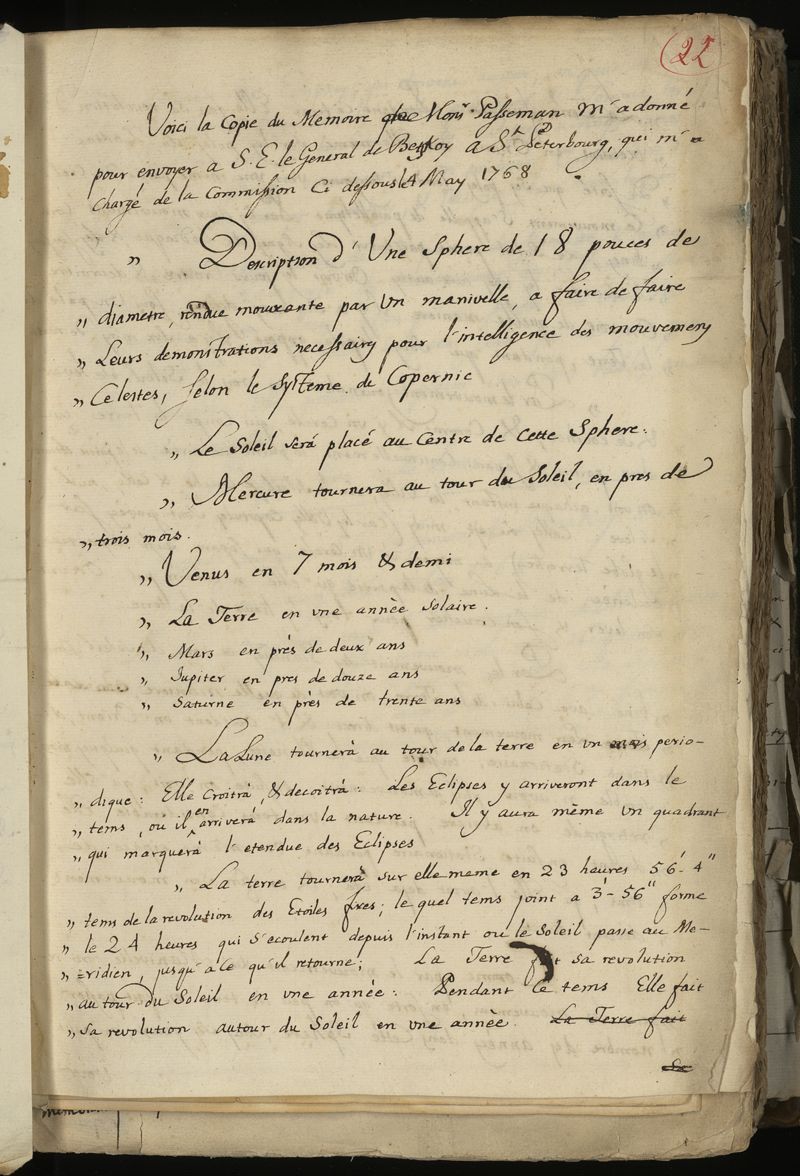 22
Voici la Copie du Memoire que Monr. Passeman m'a donné
pour envoyer a S. E. le General de Betzkoy a St. Peterbourg, qui m'a
chargé de la Commission Ci dessous le 4 May 1768
„ Description d'Une Sphere de 18 pouces de
„ diametre, rendue mouvante par un manivelle, a faire de faire
„ Leurs demonstrations necessairy pour l'intelligence des mouvemens
„ Celestes, selon le Systeme de Copernic
„ Le Soleil será placé au Centre de cette Sphere.
„ Mercure tournera au tour du Soleil, en pres de
„ trois mois.
„ Venus en 7 mois & demi
„ La Terre en une année Solaire.
„ Mars en près de deux ans
„ Jupiter en pres de douze ans
„ Saturne en près de trente ans
„ La Lune tournerà au tour de la terre en un mois perio-
„ dique: Elle croitrà, & decoitrà: Les Eclipses y arriveront dans le
„ tems, où il en arriverà dans la nature. Il y aura même un quadrant
„ qui marquerà l'etendue des Eclipses
„ La terre tournerà sur elle meme en 23 heures 56'- 4"
„ tems de la revolution des Etoiles fixes; le quel tems joint a 3'- 56" forme
„ le 24 heures qui s'ecoulent depuis l'instant ou le Soleil passe au Me-
„ =ridien, jusqu'a ce qu'il retourne; La Terre fait sa revolution
„ au tour du Soleil en une année: Pendant ce tems Elle fait
„ sa revolution autour du Soleil en une année. La Terre fait
sa